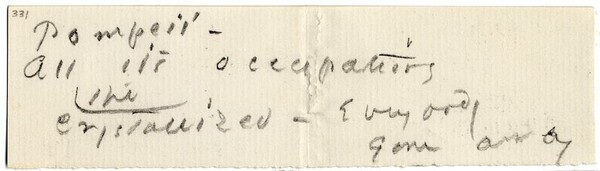 331
Pompeii -
All its occupations
crystallized - Everybody
gone away